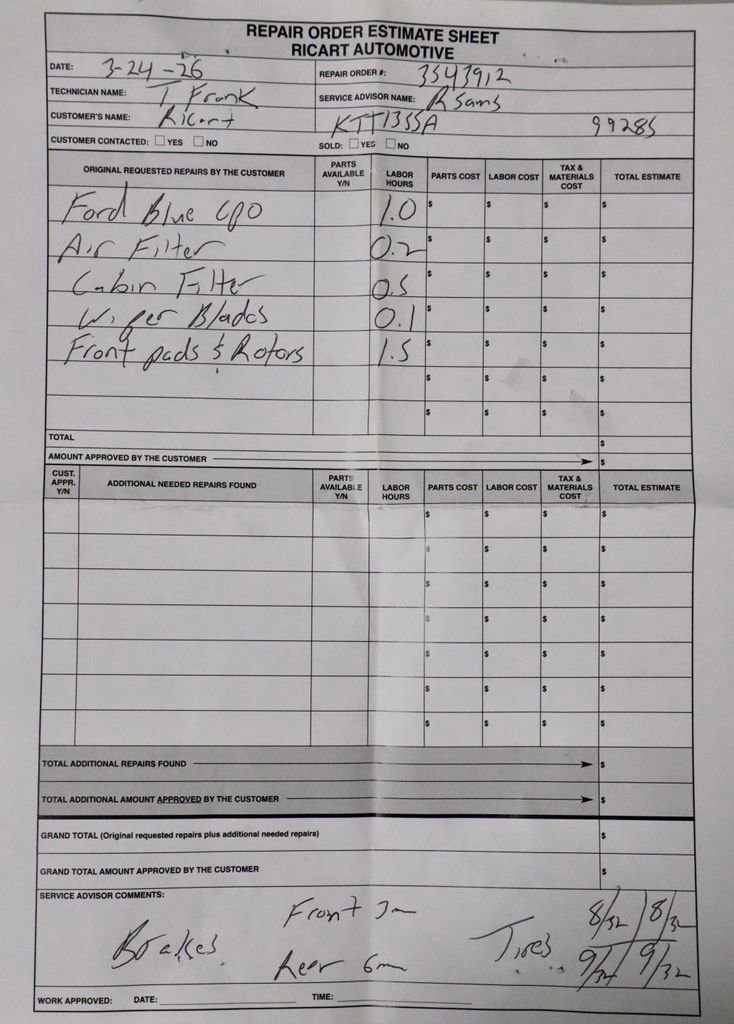 REPAIR ORDER ESTIMATE SHEET
RICART AUTOMOTIVE
DATE: 3-24-26 REPAIR ORDER #: 3543912
TECHNICIAN NAME: T Frank SERVICE ADVISOR NAME: R Sams
CUSTOMER'S NAME: Ricart KTT1355A 99285
CUSTOMER CONTACTED: YES NO SOLD: YES NO
ORIGINAL REQUESTED REPAIRS BY THE CUSTOMER PARTS AVAILABLE Y/N LABOR HOURS PARTS COST LABOR COST TAX & MATERIALS COST TOTAL ESTIMATE
Ford Blue CPO 1.0 $ $ $ $
Air Filter 0.2 $ $ $ $
Cabin Filter 0.5 $ $ $ $
Wiper Blades 0.1 $ $ $ $
Front pads & Rotors 1.5 $ $ $ $
$ $ $ $
$ $ $ $
TOTAL $
AMOUNT APPROVED BY THE CUSTOMER $
CUST. APPR. Y/N ADDITIONAL NEEDED REPAIRS FOUND PARTS AVAILABLE Y/N LABOR HOURS PARTS COST LABOR COST TAX & MATERIALS COST TOTAL ESTIMATE
$ $ $ $
$ $ $ $
$ $ $ $
$ $ $ $
$ $ $ $
$ $ $ $
$ $ $ $
TOTAL ADDITIONAL REPAIRS FOUND $
TOTAL ADDITIONAL AMOUNT APPROVED BY THE CUSTOMER $
GRAND TOTAL (Original requested repairs plus additional needed repairs) $
GRAND TOTAL AMOUNT APPROVED BY THE CUSTOMER $
SERVICE ADVISOR COMMENTS:
Front 3m 8/32 8/32
Brakes Tires
Rear 6mm 9/32 9/32
WORK APPROVED: DATE: TIME: